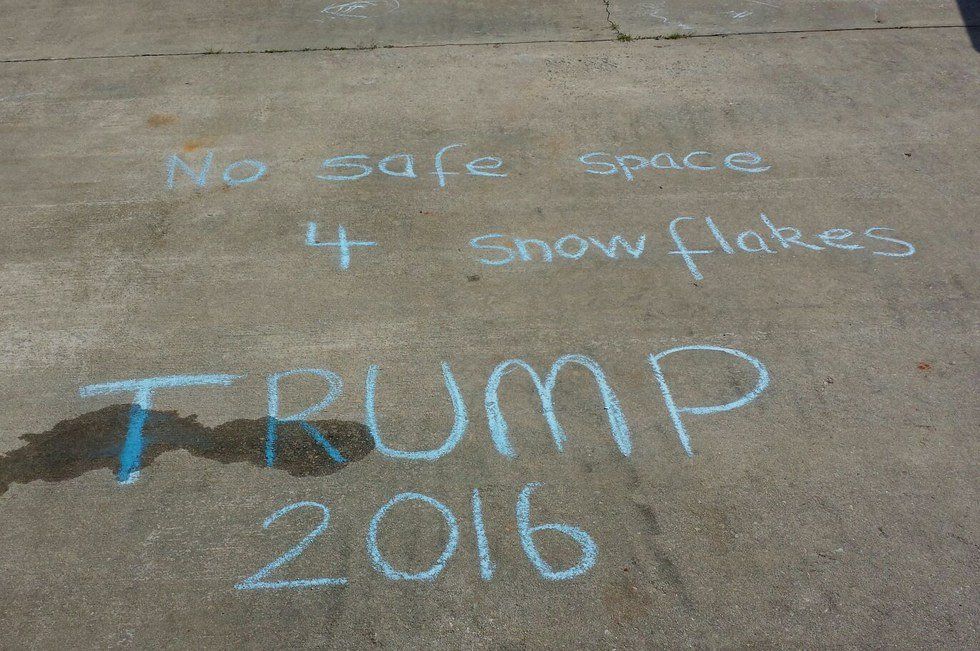 No safe space
4 snowflakes
TRUMP
2016